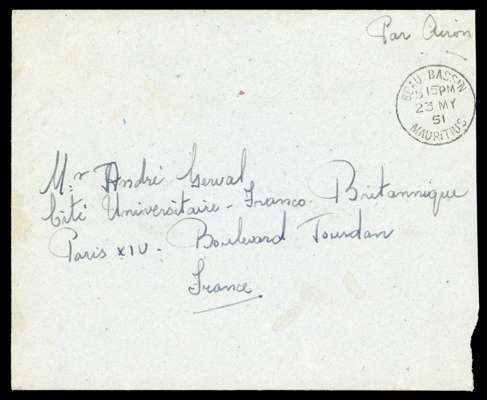 Par Avion
BEAU BASSIN
3 15PM
23 MY
51
MAURITIUS
Mr André Gerval
Cité Universitaire - Franco. Britannique
Paris XIV - Boulevard Jourdan
France